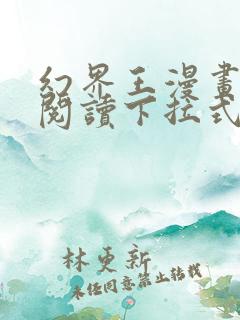 幻界王漫畫
閱讀下拉式
林更新
未經同意禁止轉載